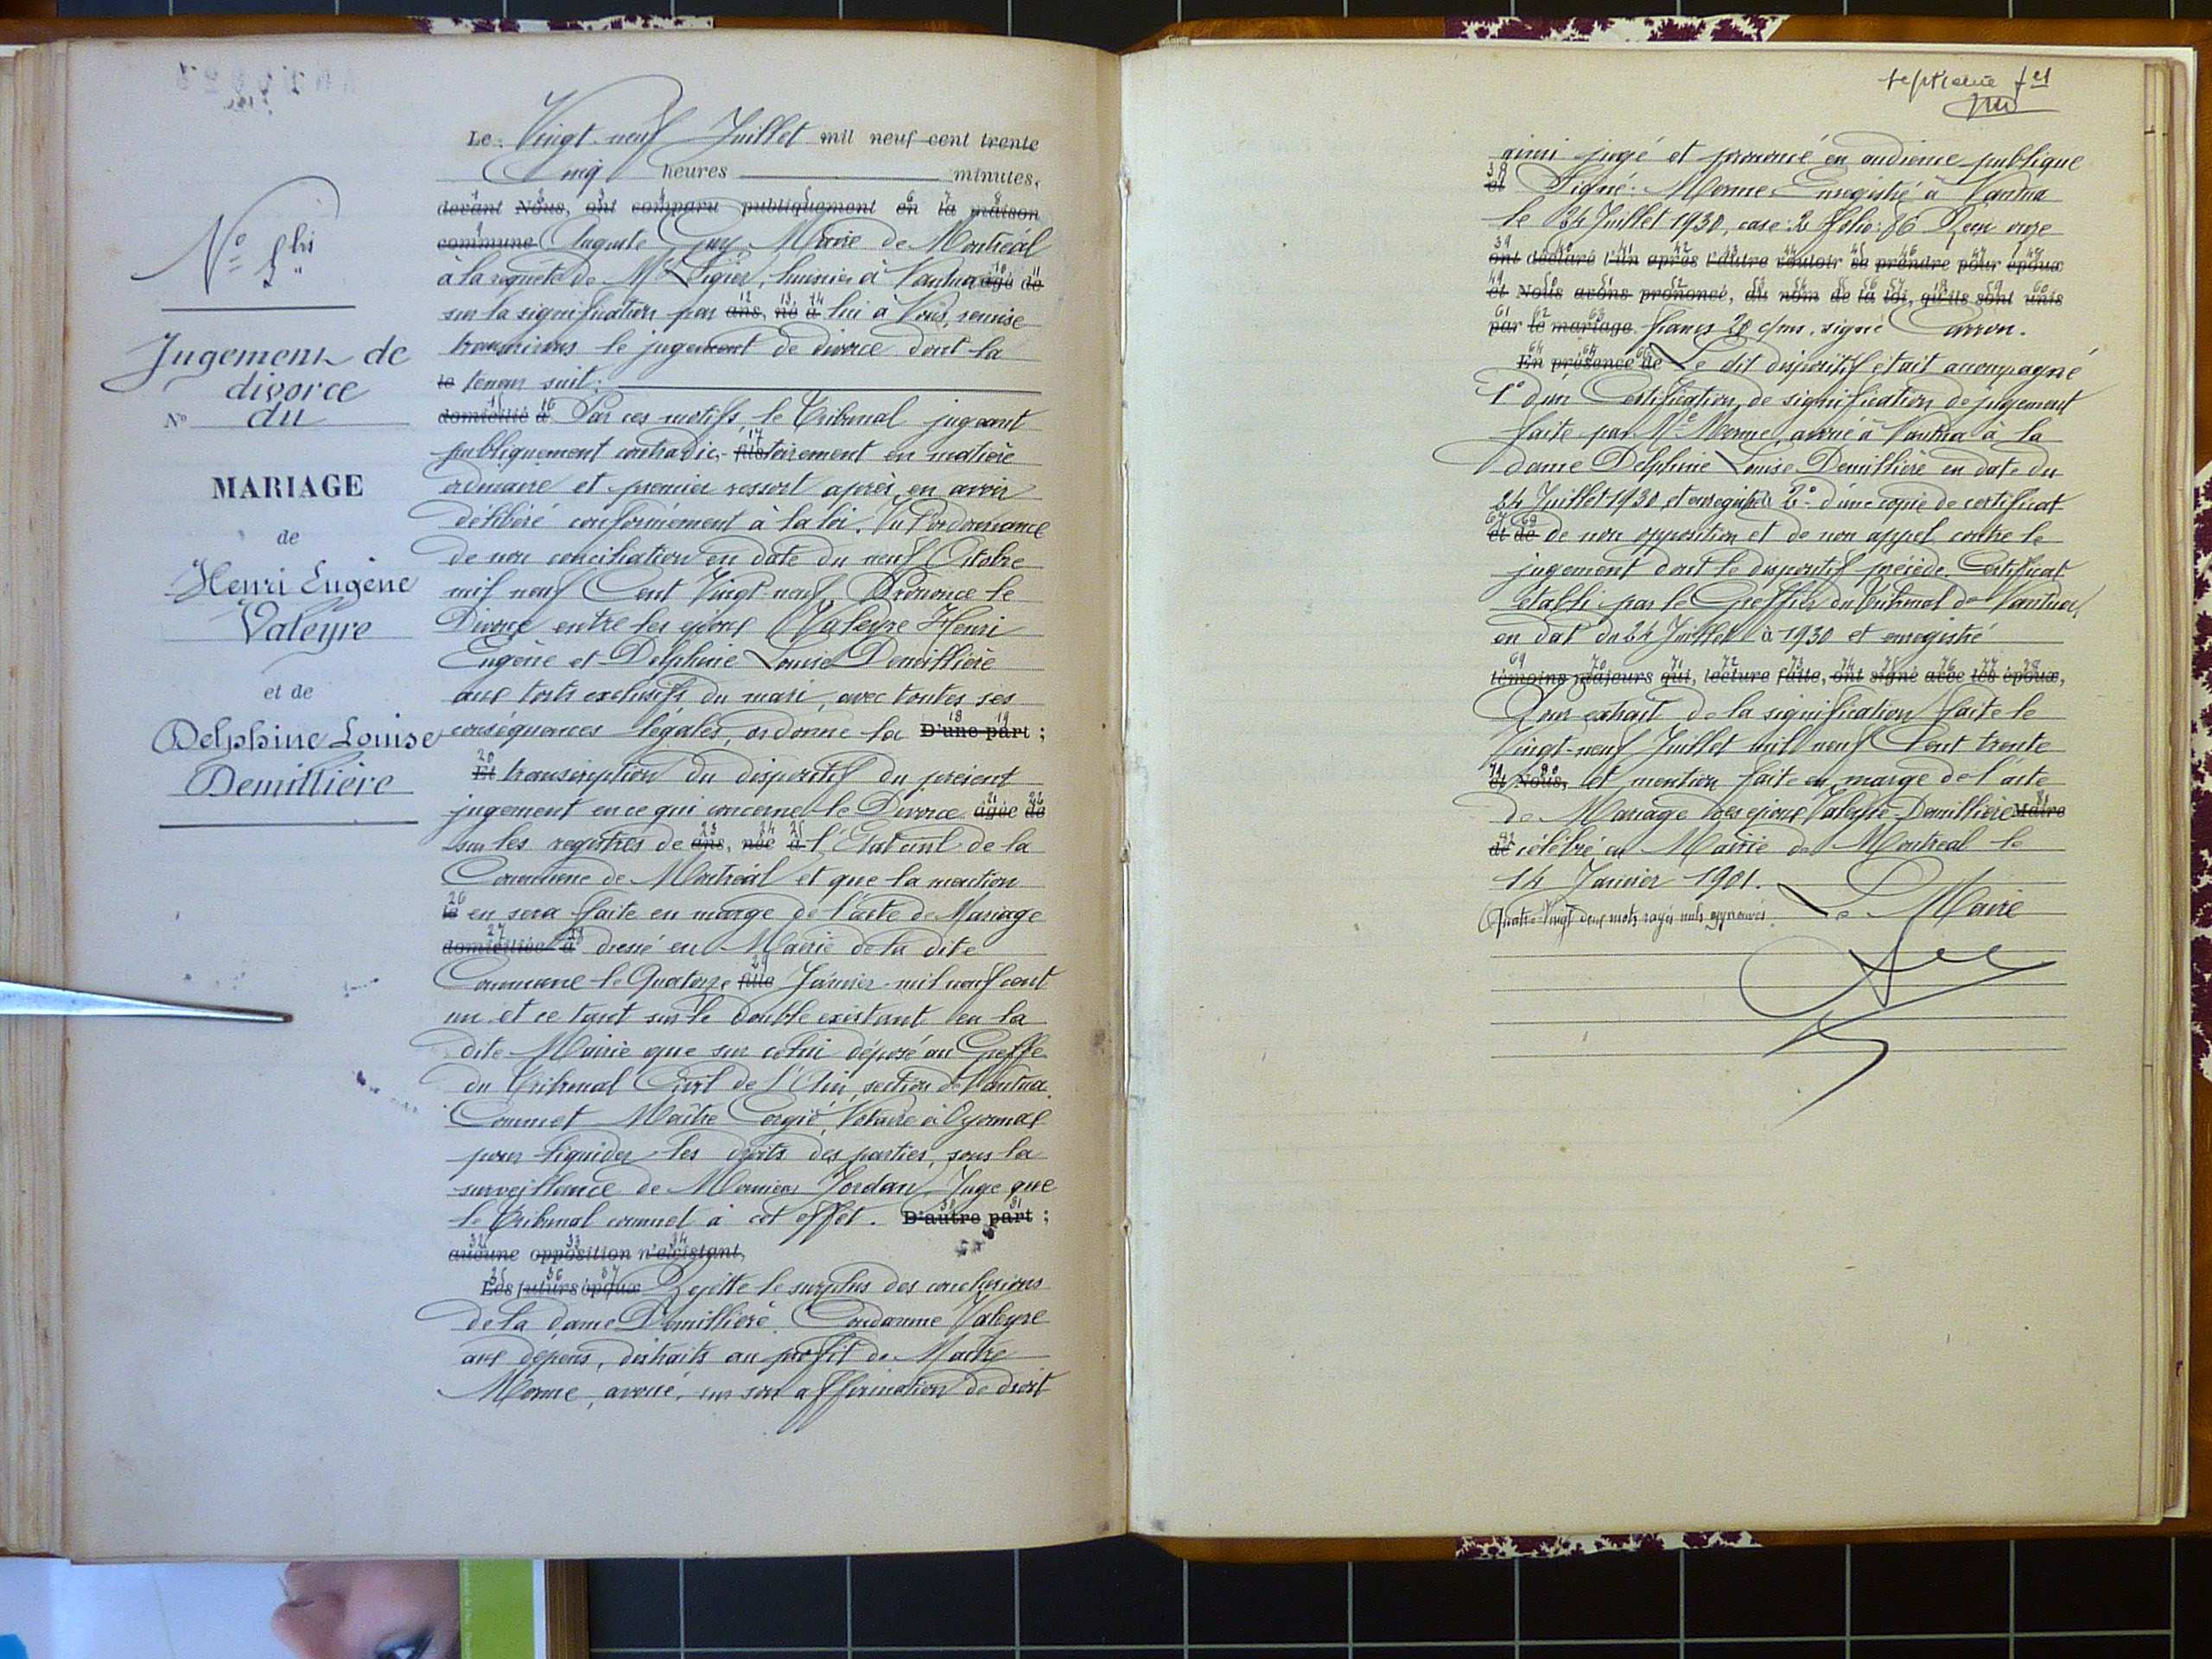 N° 5 bis
Jugement de
divorce
N° du
MARIAGE
de
Henri Eugène
Valeyre
et de
Delphine Louise
Demillière
Le Vingt-neuf Juillet mil neuf cent trente
Cinq heures minutes,
devant Nous, ont comparu publiquement en la maison
commune Auguste Guy Maire de Montréal
à la requête de Me Ligier, huissier à Nantua âgé de
sur la signification par ans, né à lui à Nous, remise
transcrivons le jugement de divorce dont la
le teneur suit :
domicilié à Par ces motifs, le Tribunal jugeant
publiquement contradic- fils toirement en matière
ordinaire et premier ressort après en avoir
délibéré conformément à la loi. Vu l'ordonnance
de non conciliation en date du neuf Octobre
mil neuf Cent Vingt-neuf. Prononce le
Divorce entre les époux Valeyre Henri
Eugène et Delphine Louise Demillière
aux torts exclusifs du mari, avec toutes ses
conséquences légales, ordonne la D'une part ;
Et transcription du dispositif du présent
jugement en ce qui concerne le Divorce âgée de
sur les registres de ans, née à l'Etat civil de la
Commune de Montréal et que la mention
le en sera faite en marge de l'acte de Mariage
domiciliée à dressé en Mairie de la dite
Commune le Quatorze fille Janvier mil neuf cent
un et ce tant sur le double existant en la
dite Mairie que sur celui déposé au Greffe
du Tribunal Civil de l'Ain, section de Nantua.
Commet Maître Notaire à Oyonnax
pour liquider les droits des parties, sous la
surveillance de Monsieur Jordan Juge que
le Tribunal commet à cet effet. D'autre part ;
aucune opposition n'existant,
Les futurs époux Rejette le surplus des conclusions
de la dame Demillière. Condamne Valeyre
aux dépens, distraits au profit de Maître
Merme, avoué, sur son affirmation de droit
septième ft
ainsi jugé et prononcé en audience publique
et Signé : Merme Enregistré à Nantua
le 24 Juillet 1930, case : 2 folio : 86 Reçu onze
ont déclaré l'un après l'autre vouloir se prendre pour époux
et Nous avons prononcé, au nom de la loi, qu'ils sont unis
par le mariage. francs 20 c/ms. signé Carron.
En présence de Le dit dispositif était accompagné
1° d'un Certification de signification de jugement
faite par Me Merme, avoué à Nantua à la
dame Delphine Louise Demillière en date du
24 Juillet 1930, et enregistré 2° d'une copie de certificat
et de de non opposition et de non appel contre le
jugement dont le dispositif précède. Certificat
établi par le Greffier du Tribunal de Nantua,
en dat du 24 Juillet à 1930 et enregistré
témoins majeurs qui, lecture faite, ont signé avec les époux,
Pour extrait de la signification faite le
Vingt-neuf Juillet mil neuf Cent trente
et Nous, et mention faite en marge de l'acte
de Mariage des époux Valeyre-Demillière Maire
de célébré en Mairie de Montréal le
14 Janvier 1901.
Quatre-Vingt deux mots rayés nuls approuvés. Le Maire